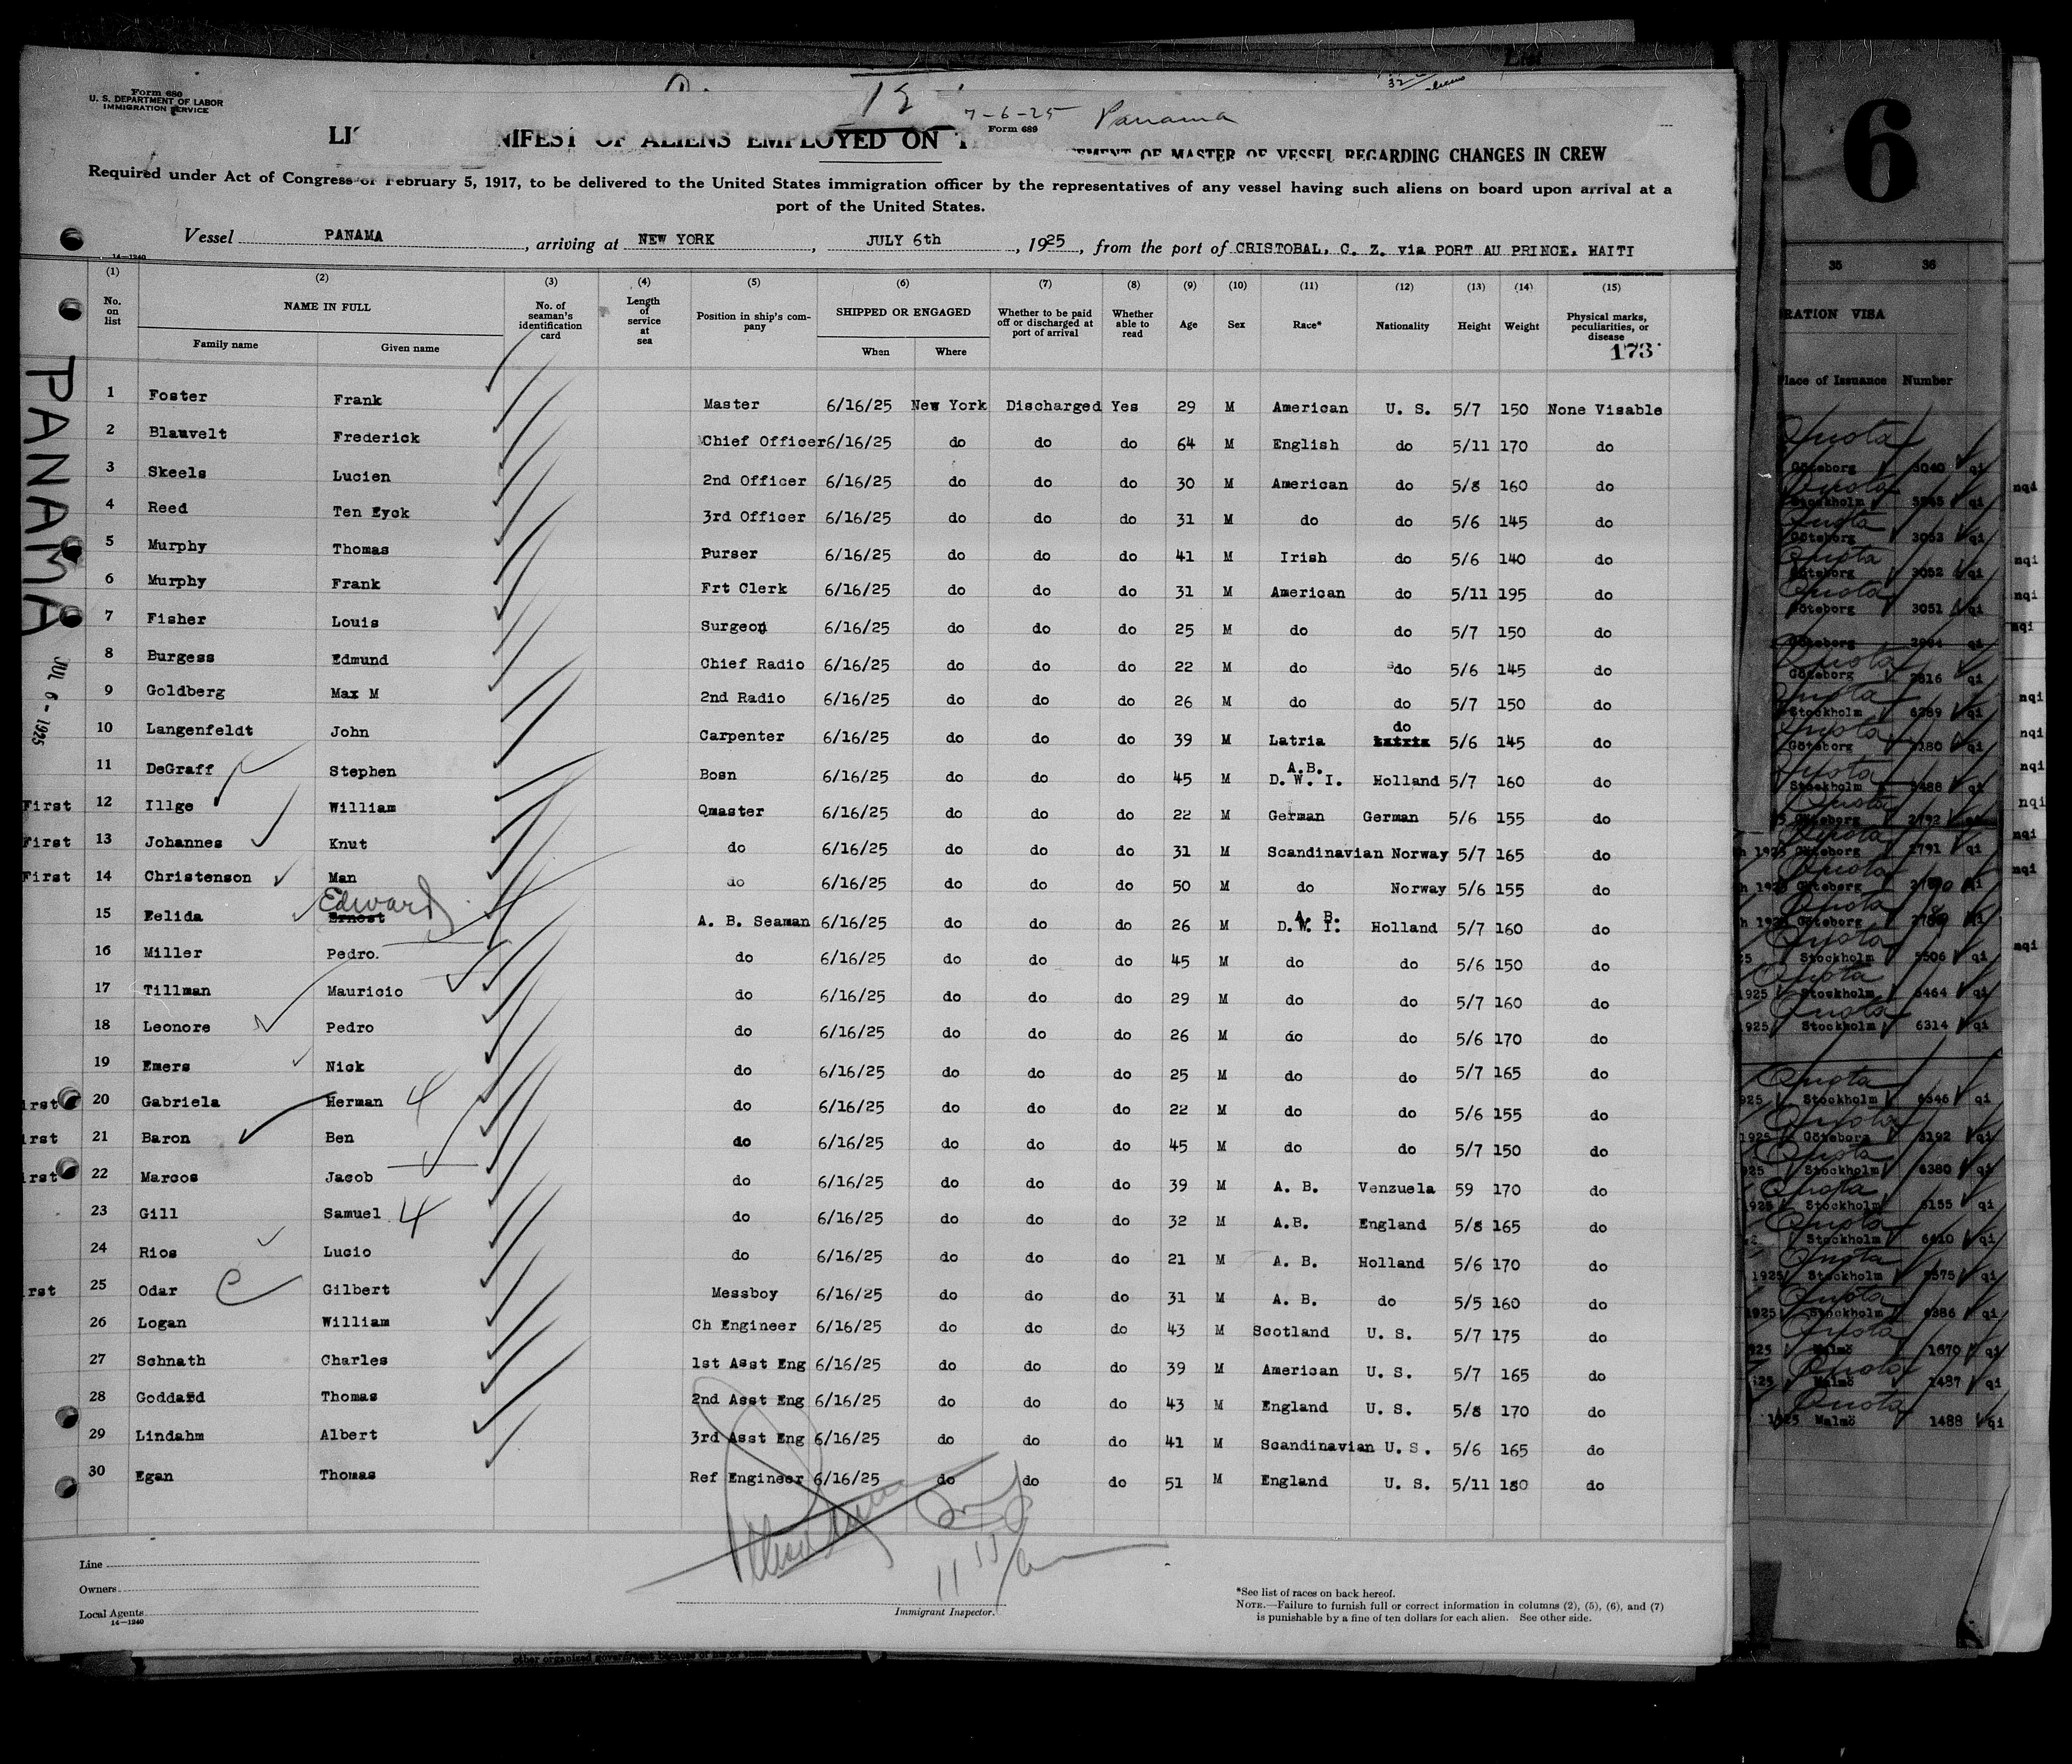 Form 680
U. S. DEPARTMENT OF LABOR
IMMIGRATION SERVICE
7-6-25 Panama
Form 689
NIFEST OF ALIENS EMPLOYED ON T
EMENT OF MASTER OF VESSEL REGARDING CHANGES IN CREW
Required under Act of Congress of February 5, 1917, to be delivered to the United States immigration officer by the representatives of any vessel having such aliens on board upon arrival at a
port of the United States.
Vessel PANAMA, arriving at NEW YORK, JULY 6th, 1925, from the port of CRISTOBAL, C. Z. via PORT AU PRINCE, HAITI
14-1240
(1) (2) (3) (4) (5) (6) (7) (8) (9) (10) (11) (12) (13) (14) (15)
No. on list NAME IN FULL No. of seaman's identification card Length of service at sea Position in ship's company SHIPPED OR ENGAGED Whether to be paid off or discharged at port of arrival Whether able to read Age Sex Race* Nationality Height Weight Physical marks, peculiarities, or disease
Family name Given name When Where
173
1 Foster Frank Master 6/16/25 New York Discharged Yes 29 M American U. S. 5/7 150 None Visable
2 Blauvelt Frederick Chief Officer 6/16/25 do do do 64 M English do 5/11 170 do
3 Skeels Lucien 2nd Officer 6/16/25 do do do 30 M American do 5/8 160 do
4 Reed Ten Eyck 3rd Officer 6/16/25 do do do 31 M do do 5/6 145 do
5 Murphy Thomas Purser 6/16/25 do do do 41 M Irish do 5/6 140 do
6 Murphy Frank Frt Clerk 6/16/25 do do do 31 M American do 5/11 195 do
7 Fisher Louis Surgeon 6/16/25 do do do 25 M do do 5/7 150 do
8 Burgess Edmund Chief Radio 6/16/25 do do do 22 M do do 5/6 145 do
9 Goldberg Max M 2nd Radio 6/16/25 do do do 26 M do do 5/7 150 do
10 Langenfeldt John Carpenter 6/16/25 do do do 39 M Latria do 5/6 145 do
11 DeGraff Stephen Bosn 6/16/25 do do do 45 M A.B. D. W. I. Holland 5/7 160 do
First 12 Illge William Qmaster 6/16/25 do do do 22 M German German 5/6 155 do
First 13 Johannes Knut do 6/16/25 do do do 31 M Scandinavian Norway 5/7 165 do
First 14 Christenson Man do 6/16/25 do do do 50 M do Norway 5/6 155 do
15 Eelida Ernest Edward A. B. Seaman 6/16/25 do do do 26 M A. B. D.W. I. Holland 5/7 160 do
16 Miller Pedro. do 6/16/25 do do do 45 M do do 5/6 150 do
17 Tillman Mauricio do 6/16/25 do do do 29 M do do 5/7 160 do
18 Leonore Pedro do 6/16/25 do do do 26 M do do 5/6 170 do
19 Emers Nick do 6/16/25 do do do 25 M do do 5/7 165 do
irst 20 Gabriela Herman 4 do 6/16/25 do do do 22 M do do 5/6 155 do
irst 21 Baron Ben do 6/16/25 do do do 45 M do do 5/7 150 do
irst 22 Marcos Jacob do 6/16/25 do do do 39 M A. B. Venzuela 59 170 do
23 Gill Samuel 4 do 6/16/25 do do do 32 M A.B. England 5/8 165 do
24 Rios Lucio do 6/16/25 do do do 21 M A. B. Holland 5/6 170 do
rst 25 Odar Gilbert Messboy 6/16/25 do do do 31 M A. B. do 5/5 160 do
26 Logan William Ch Engineer 6/16/25 do do do 43 M Scotland U. S. 5/7 175 do
27 Schnath Charles 1st Asst Eng 6/16/25 do do do 39 M American U. S. 5/7 165 do
28 Goddard Thomas 2nd Asst Eng 6/16/25 do do do 43 M England U. S. 5/8 170 do
29 Lindahm Albert 3rd Asst Eng 6/16/25 do do do 41 M Scandinavian U. S. 5/6 165 do
30 Egan Thomas Ref Engineer 6/16/25 do do do 51 M England U. S. 5/11 180 do
PANAMA
JUL 6-1925
Line
Owners
Local Agents
14-1240
Immigrant Inspector.
*See list of races on back hereof.
NOTE.—Failure to furnish full or correct information in columns (2), (5), (6), and (7)
is punishable by a fine of ten dollars for each alien. See other side.
6
35 36
RATION VISA
Place of Issuance Number
Quota
Göteborg 3040 qi
Stockholm qi
Göteborg 3053 qi
Göteborg 3052 qi
Göteborg 3051 qi
Göteborg qi
Göteborg qi
Stockholm 6289 qi
Göteborg qi
Stockholm qi
Göteborg 2792
Göteborg 2791 qi
Göteborg
Göteborg
Stockholm 5506 qi
Stockholm 6464 qi
Stockholm 6314 qi
Stockholm 6346 qi
Göteborg qi
Stockholm 6380 qi
Stockholm qi
Stockholm qi
Stockholm qi
Stockholm 6386 qi
Malmö 1670 qi
Malmö 1487 qi
1925 Malmö 1488 qi